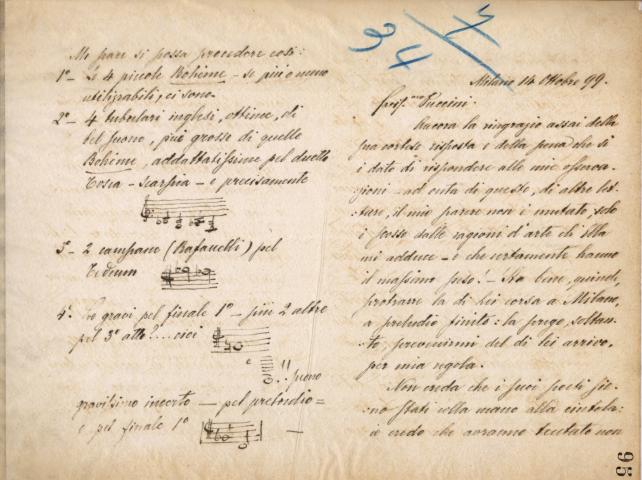 Mi pare si possa procedere così:
1º — Le 4 piccole Bohème — se più o meno
utilizzabili, ci sono.
2º — 4 tubolari inglesi, ottime, di
bel suono, più grosse di quelle
Bohème, addattatissime pel duetto
Tosca — Scarpia — e precisamente
3º — 2 campane (Bafanelli) pel
Tedeum
4º Le gravi pel finale 1º — più 2 altre
pel 3º atto?....cioè
e
!! suono
gravissimo incerto — pel preludio =
e pel finale 1º
74
34
Milano 14 Ottobre 99.
Puccini.
Ancora la ringrazio assai della
sua cortese risposta e della pena che si
è dato di rispondere alle mie osserva-
zioni — ad onta di queste, di altre let-
:tere, il mio parere non è mutato, solo
è scosso dalle ragioni d'arte ch'Ella
mi adduce — e che certamente hanno
il massimo peso! — Sta bene, quindi,
protrarre la di Lei corsa a Milano,
a preludio finito: la prego, soltan-
:to, preavvisarmi del di Lei arrivo,
per mia regola.
Non creda che i suoi poeti sie-
:no stati colla mano alla cintola:
io credo che avranno tentato non
95